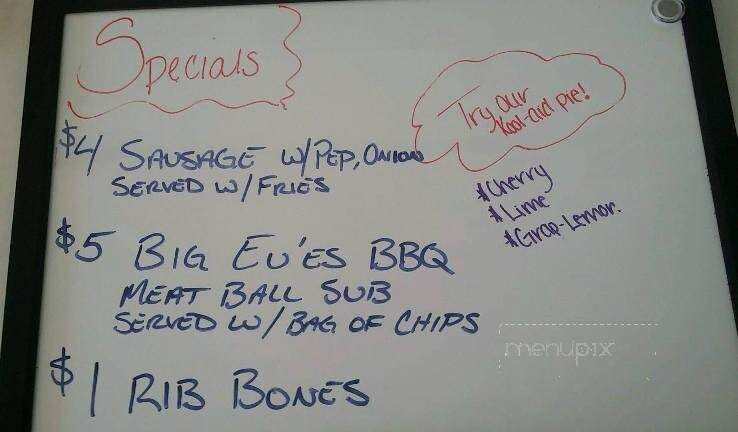 Specials
$4 SAUSAGE W/PEP, ONION
SERVED W/FRIES
$5 BIG EU'ES BBQ
MEAT BALL SUB
SERVED W/BAG OF CHIPS
$1 RIB BONES
Try our
Kool-aid pie!
*Cherry
*Lime
*Grap-Lemon.
menupix